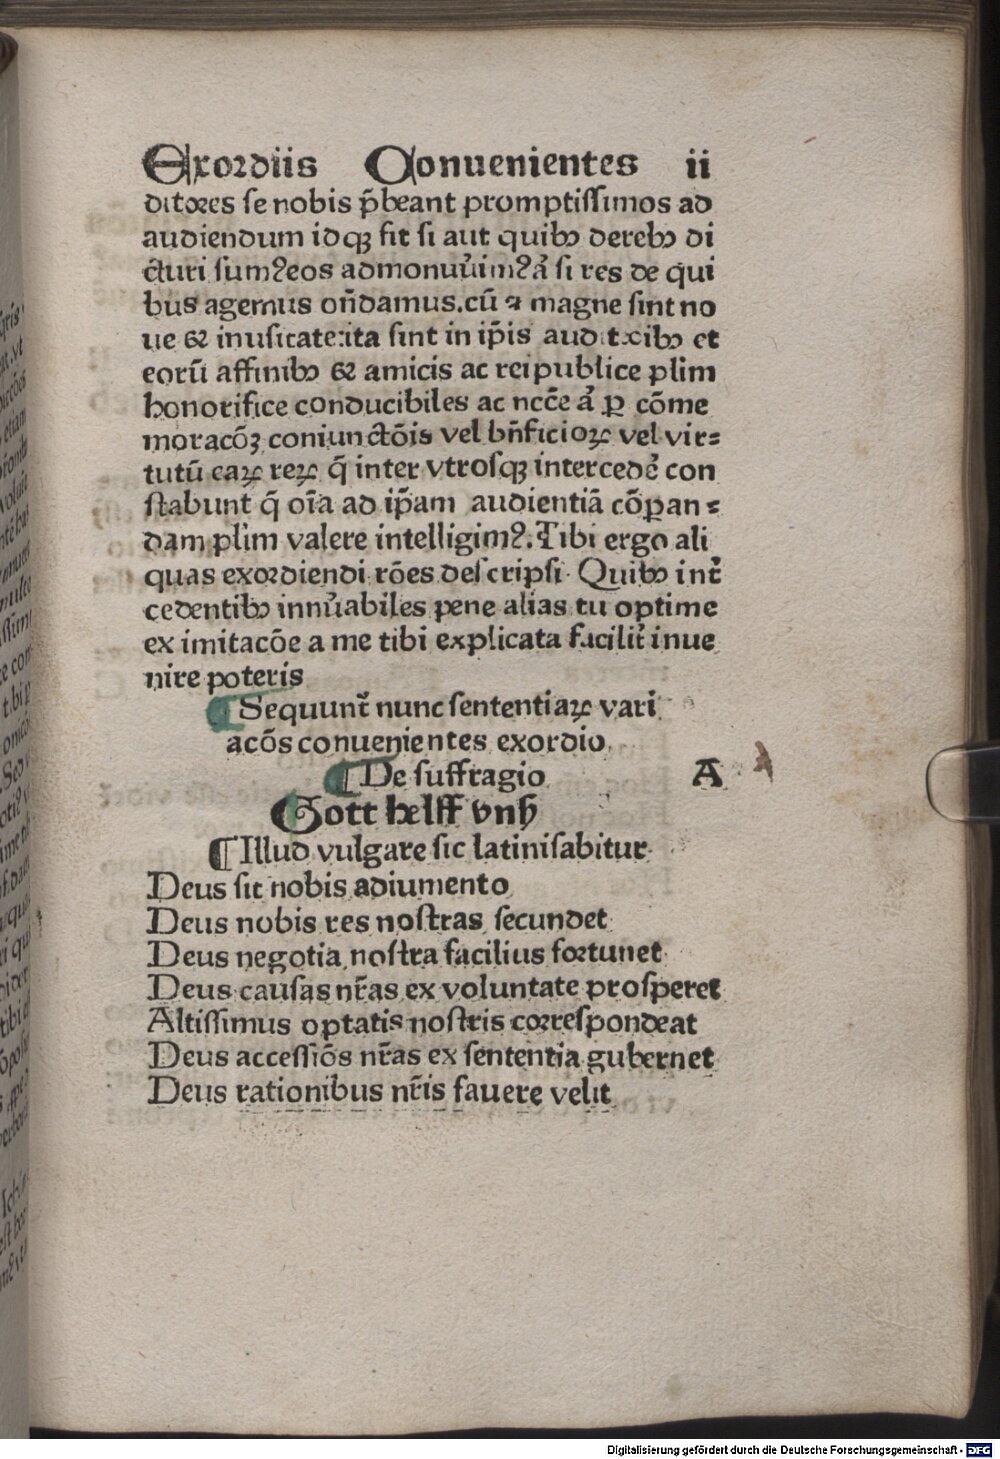 Exordiis Conuenientes ii
ditores se nobis p̄beant promptissimos ad
audiendum idqꝫ fit si aut quibꝯ derebꝯ di
cturi sumꝰeos admonuu᷒imꝰa᷒ si res de qui
bus agemus on̄damus.cū ⁊ magne sint no
ue & inusitate:ita sint in ip̄is auditoribꝯ et
eorū affinibꝯ & amicis ac rei publice plim
honorifice conducibiles ac ncc̄e a᷒ ꝑ cōme
moracōꝫ coniunctōis vel bn̄ficioꝝ vel vir⸗
tutū eaꝝ reꝝ q̄ inter vtrosqꝫ intercede᷒ con
stabunt q̄ oīa ad ip̄am audientiā cōꝑan⸗
dam plim valere intelligimꝰ.Tibi ergo ali
quas exordiendi rōes descripsi. Quibꝯ int᷒
cedentibꝯ innu᷒abiles pene alias tu optime
ex imitacōe a me tibi explicata facilit᷒ inue
nire poteris
¶Sequunt᷒ nunc sententiaꝝ vari
acōs conuenientes exordio.
¶De suffragio A
Gott helff vnß
¶Illud vulgare sic latinisabitur
Deus sit nobis adiumento
Deus nobis res nostras secundet
Deus negotia nostra facilius fortunet
Deus causas nr̄as ex voluntate prosperet
Altissimus optatis nostris correspondeat
Deus accessiōs nr̄as ex sententia gubernet
Deus rationibus nr̄is fauere velit
Digitalisierung gefördert durch die Deutsche Forschungsgemeinschaft - DFG